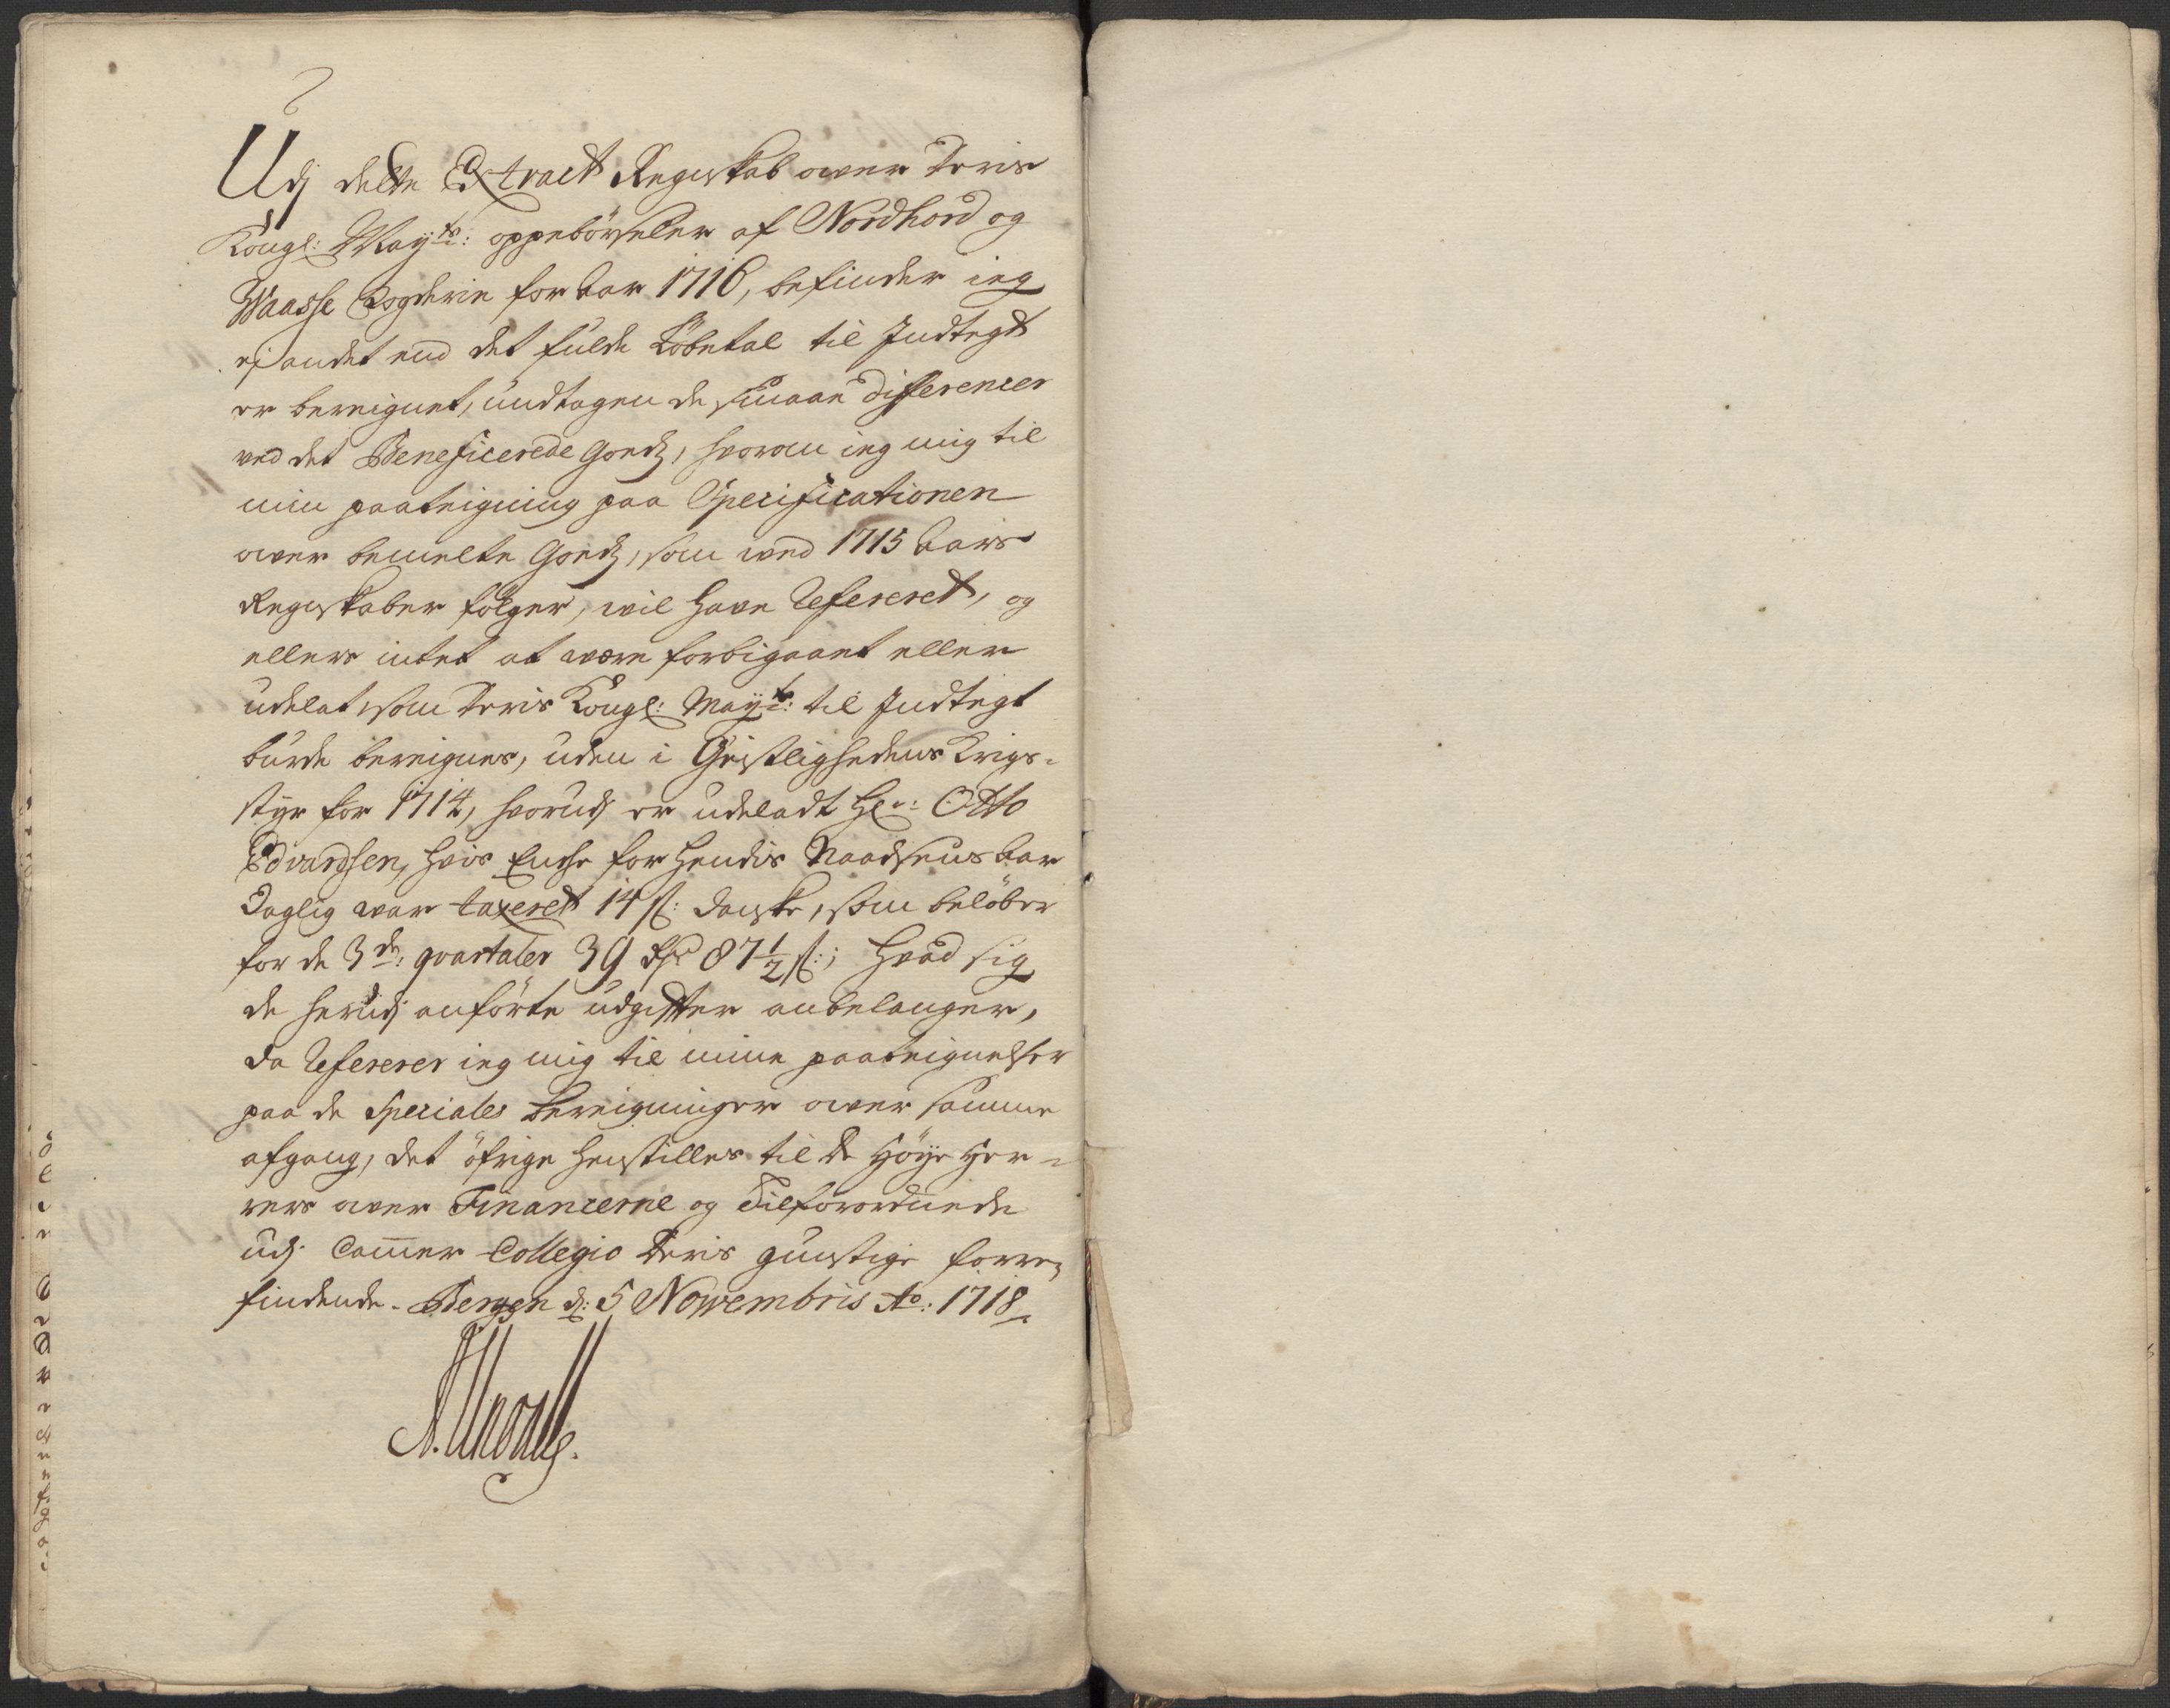 Udj dette Extract Regnskab over Deris
Kongl: Mayts: oppebørseler af Nordhord og
Waasse Fogderie for aar 1716, befinder ieg
ej andet end det fulde Løbetal til Indtegt
er bereignet, undtagen de smaae Differencer
ved det Beneficerede Goedz, hvorom ieg mig til
min paateigning paa Specificationen
over bemelte Goedz, som ved 1715 aars
Regnskaber følger, vil have Refereret, og
ellers intet at være forbigaaet eller
udelat, som Deris Kongl: Mayts: til Indtegt
burde bereignes, uden i Geistlighedens Krigs-
styr for 1714, hvorudj er udeladt Hr: Otto
Edvardsen, hvis Enche for hendis Naadsens aar
Daglig var taxeret 14 s: danske, som beløber
for de 3de: qvartaler 39 Rdr 87 1/2 s:; Hvad sig
de herudj anførte udgifter anbelanger,
da Refererer ieg mig til mine paateignelser
paa de Speciales bereigninger over samme
afgang, det øfrige henstilles til de Høye Her-
rers over Financerne og Tilforordnede
udj Cammer Collegio Deris gunstige forre-
findende. Bergen d: 5 Novembris Ao: 1718